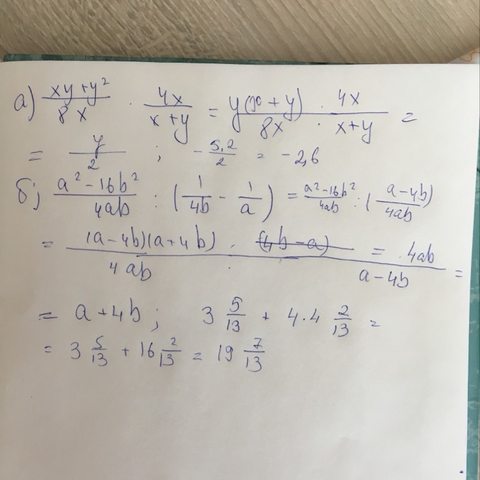 а) (xy+y²)/(8x) · (4x)/(x+y) = (y(x+y) · 4x)/(8x · x+y) =
= y/2 ; -5,2/2 = -2,6
б) (a²-16b²)/(4ab) : (1/(4b) - 1/a) = (a²-16b²)/(4ab) : ((a-4b)/(4ab))
= ((a-4b)(a+4b))/(4ab) · 4ab/(a-4b) =
= a+4b ; 3 5/13 + 4·4 2/13 =
= 3 5/13 + 16 2/13 = 19 7/13